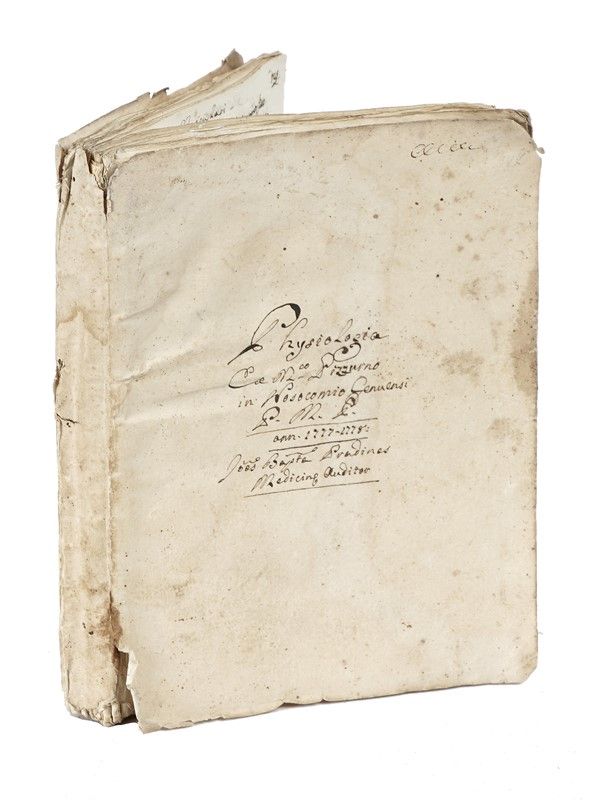 Physiologia
Ex M.co Pizzurno
in Nosocomio Genuensi
P. M. P.
ann. 1777-1778:
Joes Bapta Pradines
Medicinę Auditor